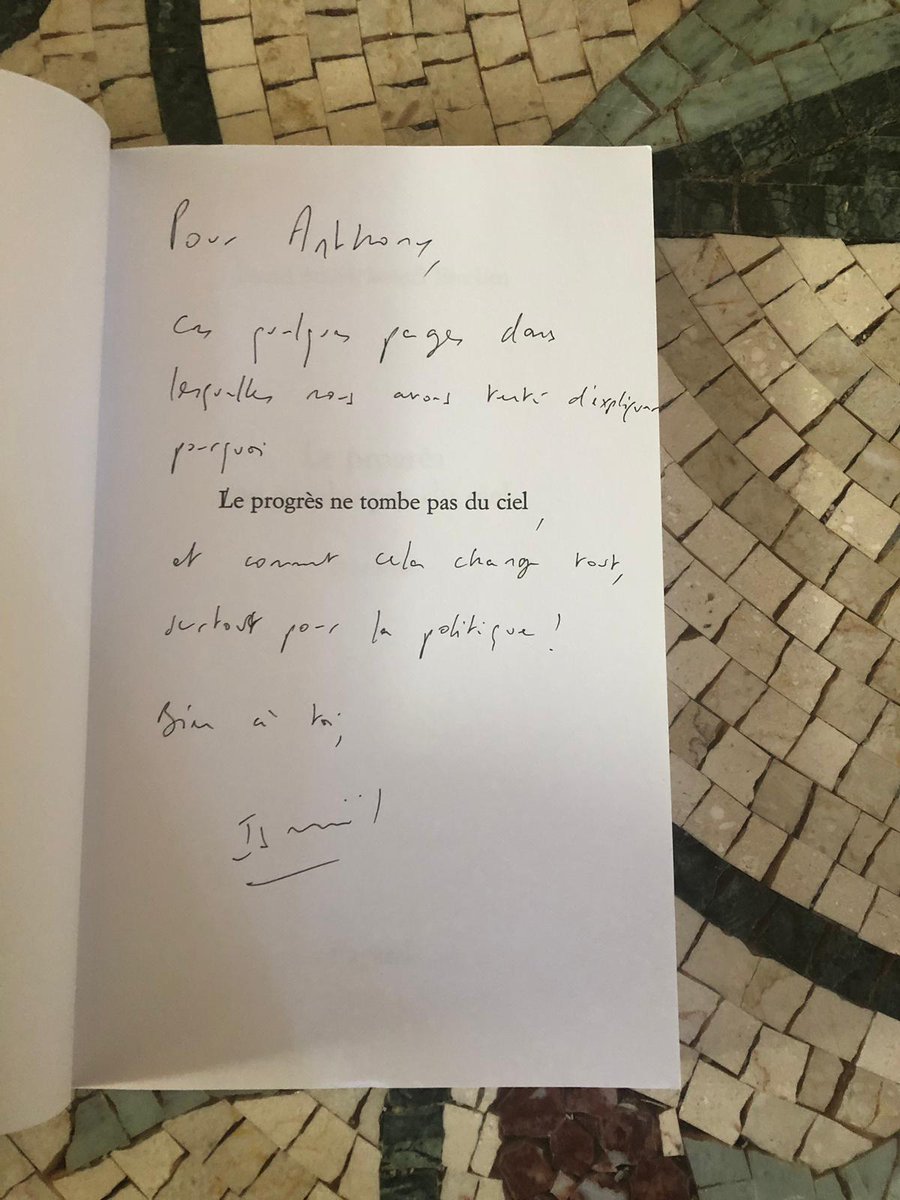 Pour Anthony,
Ces quelques pages dans
lesquelles nous avons tenté d'expliquer
pourquoi
Le progrès ne tombe pas du ciel,
et comment cela change tout,
surtout pour la politique !
Bien à toi,
Ismaël